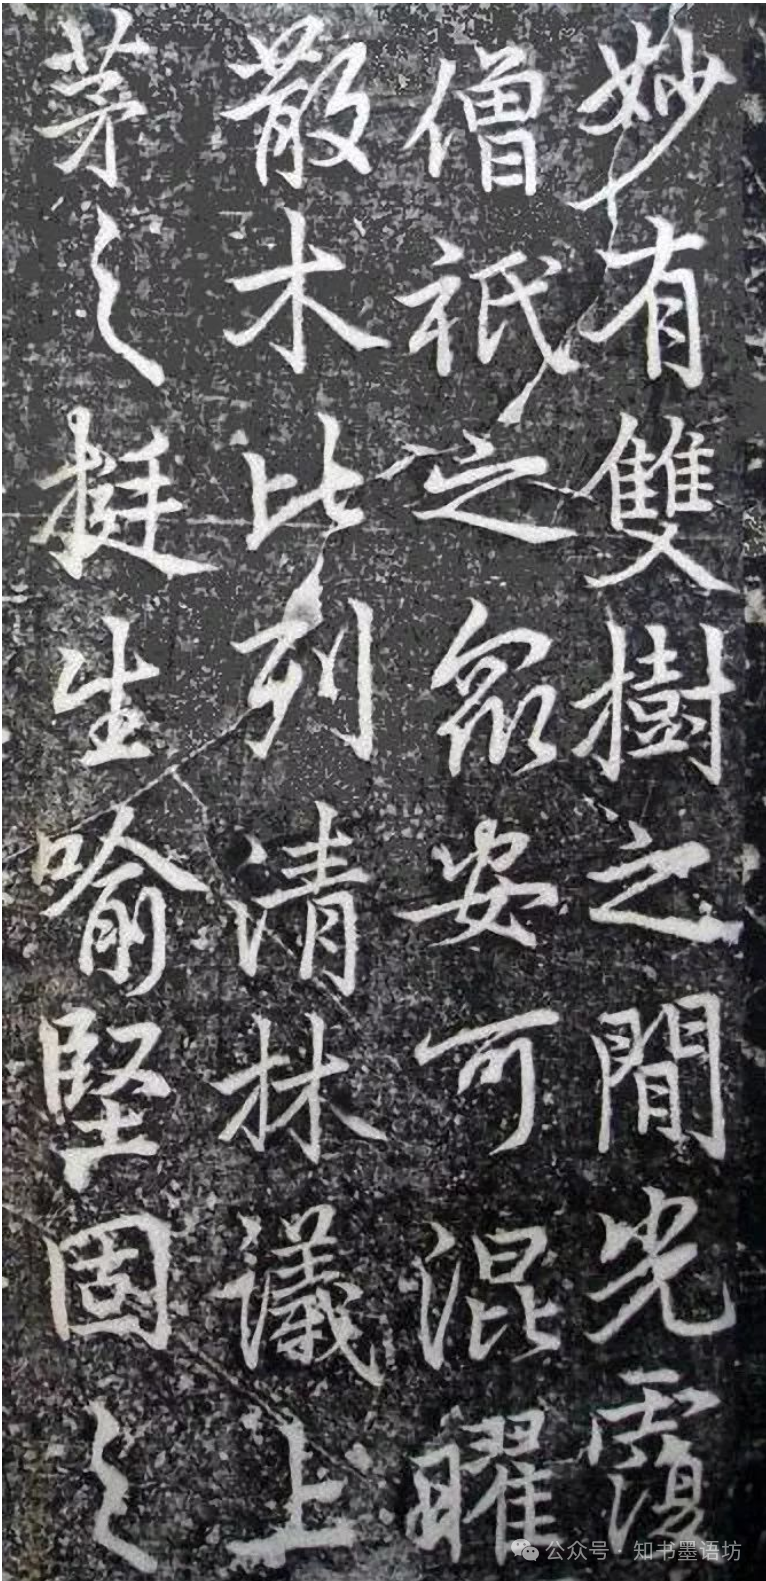 妙有雙樹之閒光覆
僧祇之眾安可混曜
散木比列清林議上
茅之挺生喻堅固之
公众号 · 知书墨语坊